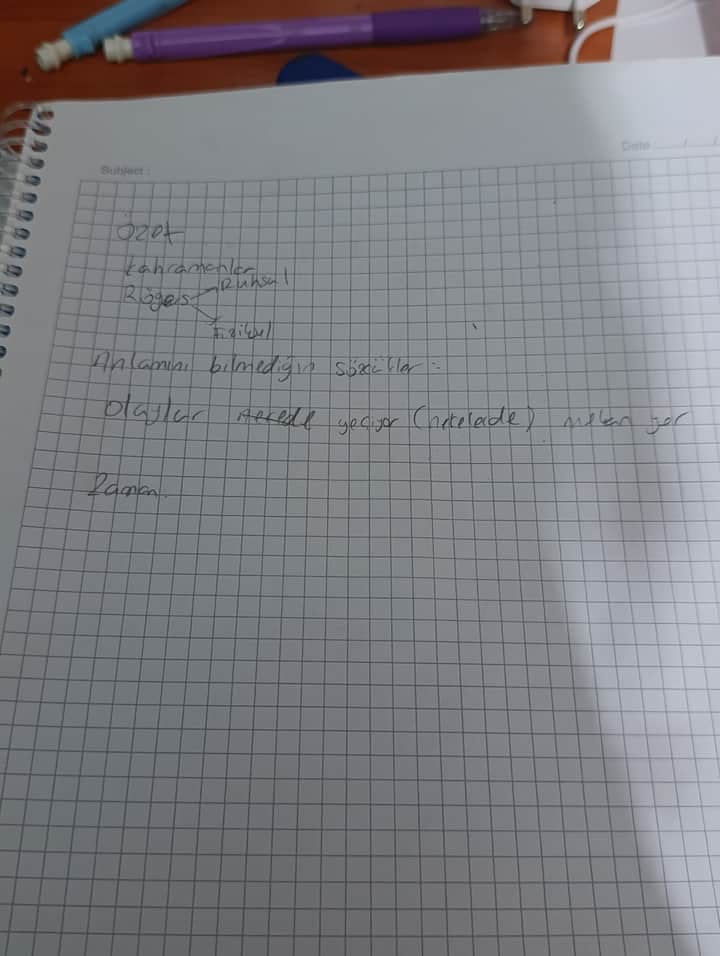 Date / /
Subject :
Özet
Kahramanlar
Ruhsal
Fiziksel
Anlamını bilmediğin sözcükler :
Olaylar nerede geçiyor mekan yer
Zaman